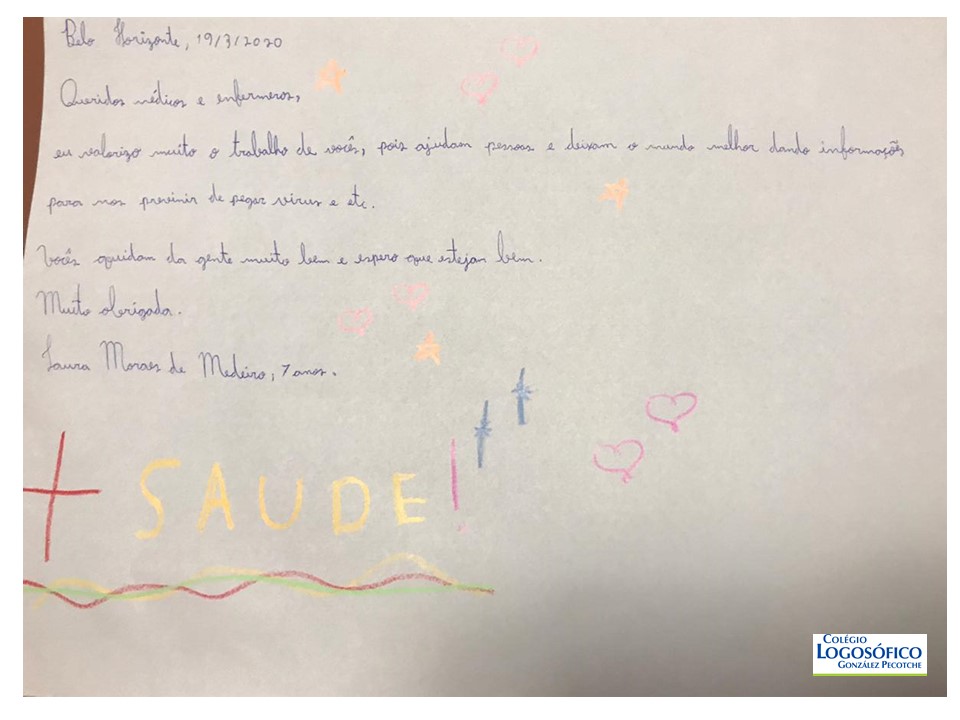 Belo Horizonte, 19/3/2020
Queridos médicos e enfermeros,
eu valorizo muito o trabalho de vocês, pois ajudam pessoas e deixam o mundo melhor dando informaçõs
para nos previnir de pegar vírus e etc.
Vocês quidam da gente muito bem e espero que estejan bem.
Muito obrigada.
Laura Moraes de Medeiro, 7 anos.
+ SAUDE!
COLÉGIO
LOGOSÓFICO
GONZÁLEZ PECOTCHE